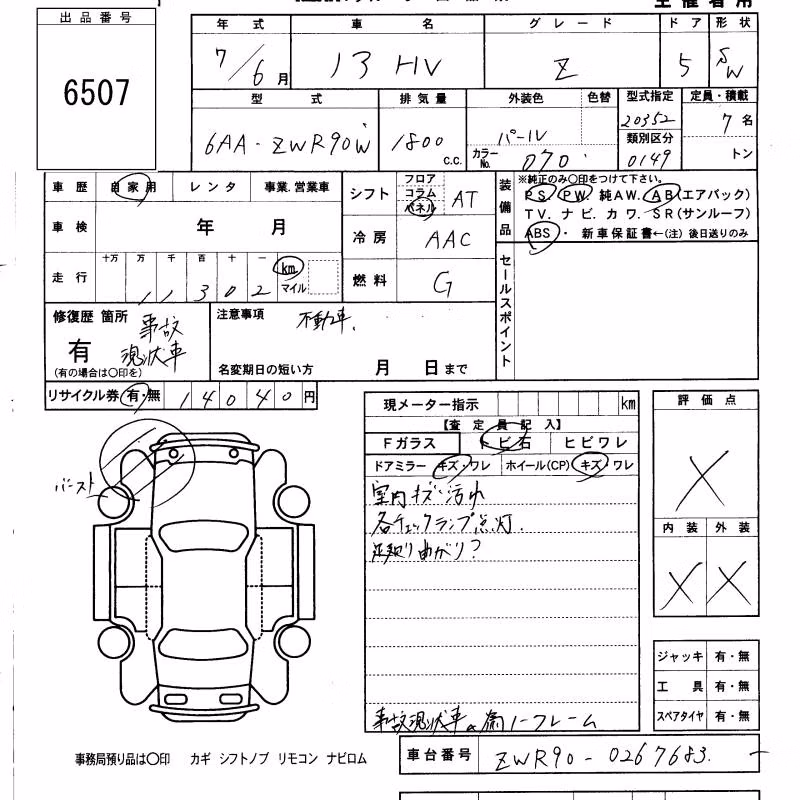 主催者用
出品番号
6507
年式 車名 グレード ドア 形状
7/6月 13 HV Z 5 SW
型式 排気量 外装色 色替 型式指定 定員・積載
6AA-ZWR90W 1800 c.c. パール 20352 7名
類別区分
カラーNo. 070 0149 トン
車歴 自家用 レンタ 事業.営業車
シフト フロア コラム パネル AT
装備品 ※純正のみ○印をつけて下さい。
PS. PW. 純AW. AB(エアバック)
TV. ナビ. カワ. SR(サンルーフ)
ABS・ 新車保証書←(注) 後日送りのみ
車検 年 月
冷房 AAC
走行 十万 万 千 百 十 一
11302 km マイル
燃料 G
セールスポイント
修復歴 箇所 事故
有 現状車
(有の場合は○印を)
注意事項 不動車.
名変期日の短い方 月 日まで
リサイクル券 有・無 14040円
現メーター指示 km
【査定員記入】
Fガラス トビ石 ヒビワレ
ドアミラー キズ・ワレ ホイール(CP) キズ・ワレ
室内キズ・汚れ
各チェックランプ点灯.
曲がり?
事故現状車
フレーム
評価点
X
内装 外装
X X
バースト
ジャッキ 有・無
工具 有・無
スペアタイヤ 有・無
事務局預り品は○印 カギ シフトノブ リモコン ナビロム
車台番号 ZWR90-0267683